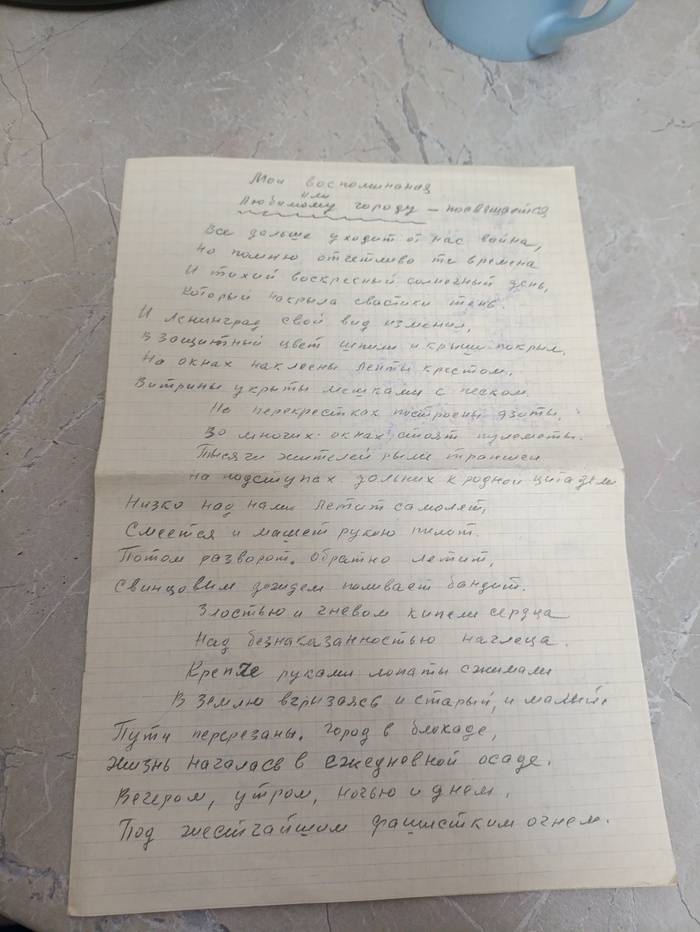 Мои воспоминания
или
Любимому городу – посвещается
Все дальше уходит от нас война,
Но помню отчетливо те времена
И тихий воскресный солнечный день,
Который покрыла свастики тень.
И Ленинград свой вид изменил,
В защитный цвет шпили и крыши покрыл.
На окнах наклеены ленты крестом.
Витрины укрыты мешками с песком.
На перекрестках построены дзоты,
Во многих окнах стоят пулеметы.
Тысячи жителей рыли траншеи
На подступах дальних к родной цитадели
Низко над нами летит самолет,
Смеется и машет рукою пилот.
Потом разворот. Обратно летит,
Свинцовым дождем поливает бандит.
Злостью и гневом кипели сердца
Над безнаказанностью наглеца.
Крепче руками лопаты сжимали
В землю вгрызаясь и старый, и малый.
Пути перерезаны. Город в блокаде,
Жизнь началась в ежедневной осаде.
Вечером, утром, ночью и днем.
Под жестчайшим фашистким огнем.